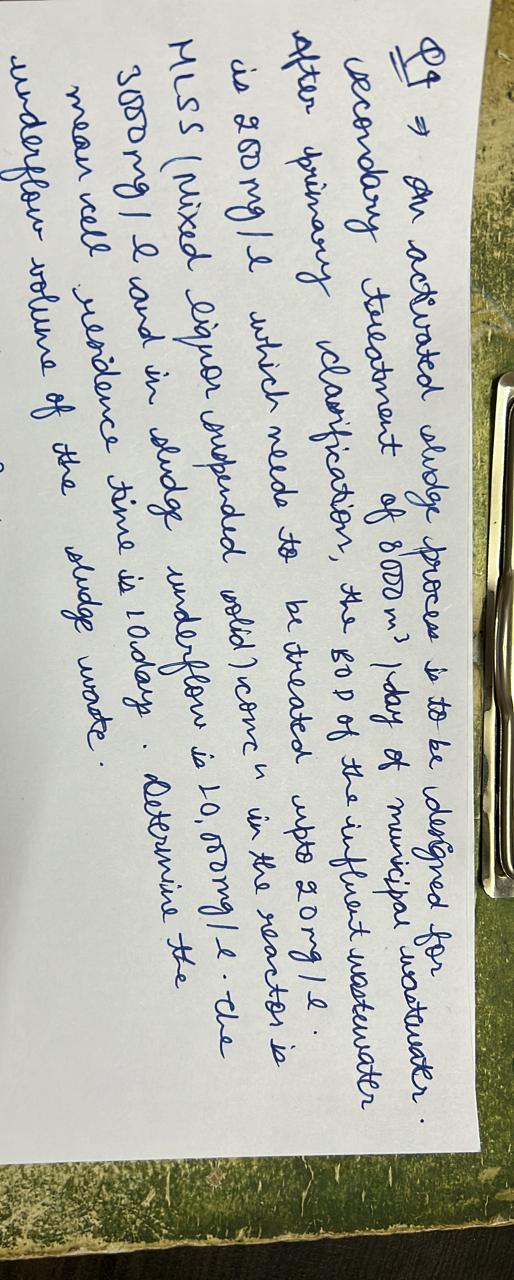 Q4 ⇒ An activated sludge process is to be designed for
secondary treatment of 8000 m³ /day of municipal wastewater.
After primary clarification, the BOD of the influent wastewater
is 200 mg/l which needs to be treated upto 20 mg/l.
MLSS (Mixed liquor suspended solid) concn in the reactor is
3000 mg/l and in sludge underflow is 10,000 mg/l. The
mean cell residence time is 10 days. Determine the
underflow volume of the sludge waste.